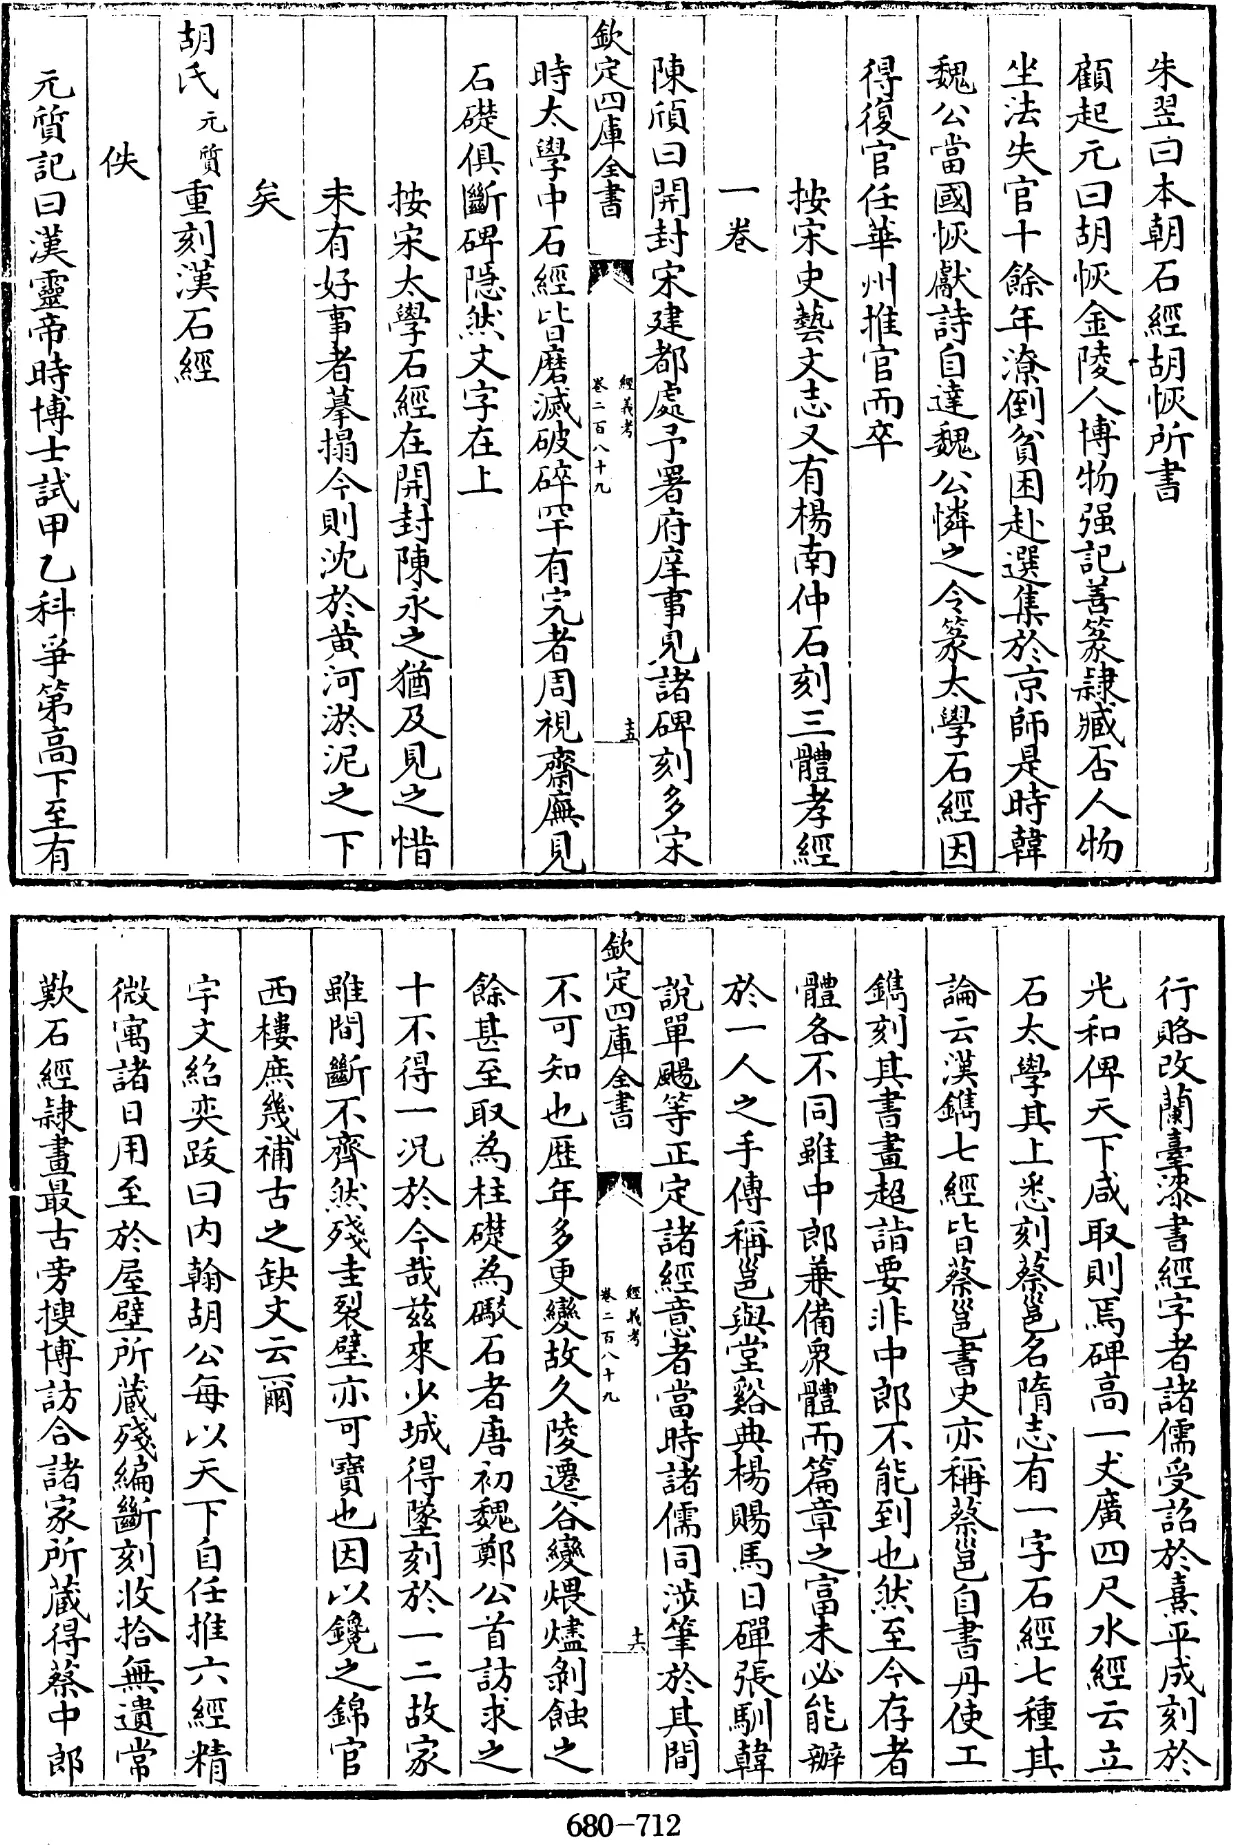 朱翌曰本朝石經胡恢所書
顧起元曰胡恢金陵人博物强記善篆隸臧否人物
坐法失官十餘年潦倒貧困赴選集於京師是時韓
魏公當國恢獻詩自達魏公憐之令篆太學石經因
得復官任華州推官而卒
按宋史藝文志又有楊南仲石刻三體孝經
一卷
陳頎曰開封宋建都處予署府庠事見諸碑刻多宋
欽定四庫全書
經義考
卷二百八十九
十五
時太學中石經皆磨滅破碎罕有完者周視齋廡見
石礎俱斷碑隱然文字在上
按宋太學石經在開封陳永之猶及見之惜
未有好事者摹搨今則沈於黄河淤泥之下
矣
胡氏元質重刻漢石經
佚
元質記曰漢靈帝時博士試甲乙科爭第高下至有
行賂改蘭臺漆書經字者諸儒受詔於熹平成刻於
光和俾天下咸取則焉碑高一丈廣四尺水經云立
石太學其上悉刻蔡邕名隋志有一字石經七種其
論云漢鐫七經皆蔡邕書史亦稱蔡邕自書丹使工
鐫刻其書畫超詣要非中郎不能到也然至今存者
體各不同雖中郎兼備衆體而篇章之富未必能辦
於一人之手傳稱邕與堂谿典楊賜馬日磾張馴韓
說單颺等正定諸經意者當時諸儒同涉筆於其間
欽定四庫全書
經義考
卷二百八十九
十六
不可知也歴年多更變故久陵遷谷變煨燼剝蝕之
餘甚至取為柱礎為礟石者唐初魏鄭公首訪求之
十不得一况於今哉兹來少城得墜刻於一二故家
雖間斷不齊然殘圭裂璧亦可寶也因以鑱之錦官
西樓庶幾補古之缺文云爾
宇文紹奕跋曰内翰胡公每以天下自任推六經精
微寓諸日用至於屋壁所蔵殘編斷刻收拾無遺常
歎石經隸畫最古旁搜博訪合諸家所蔵得蔡中郎
680-712